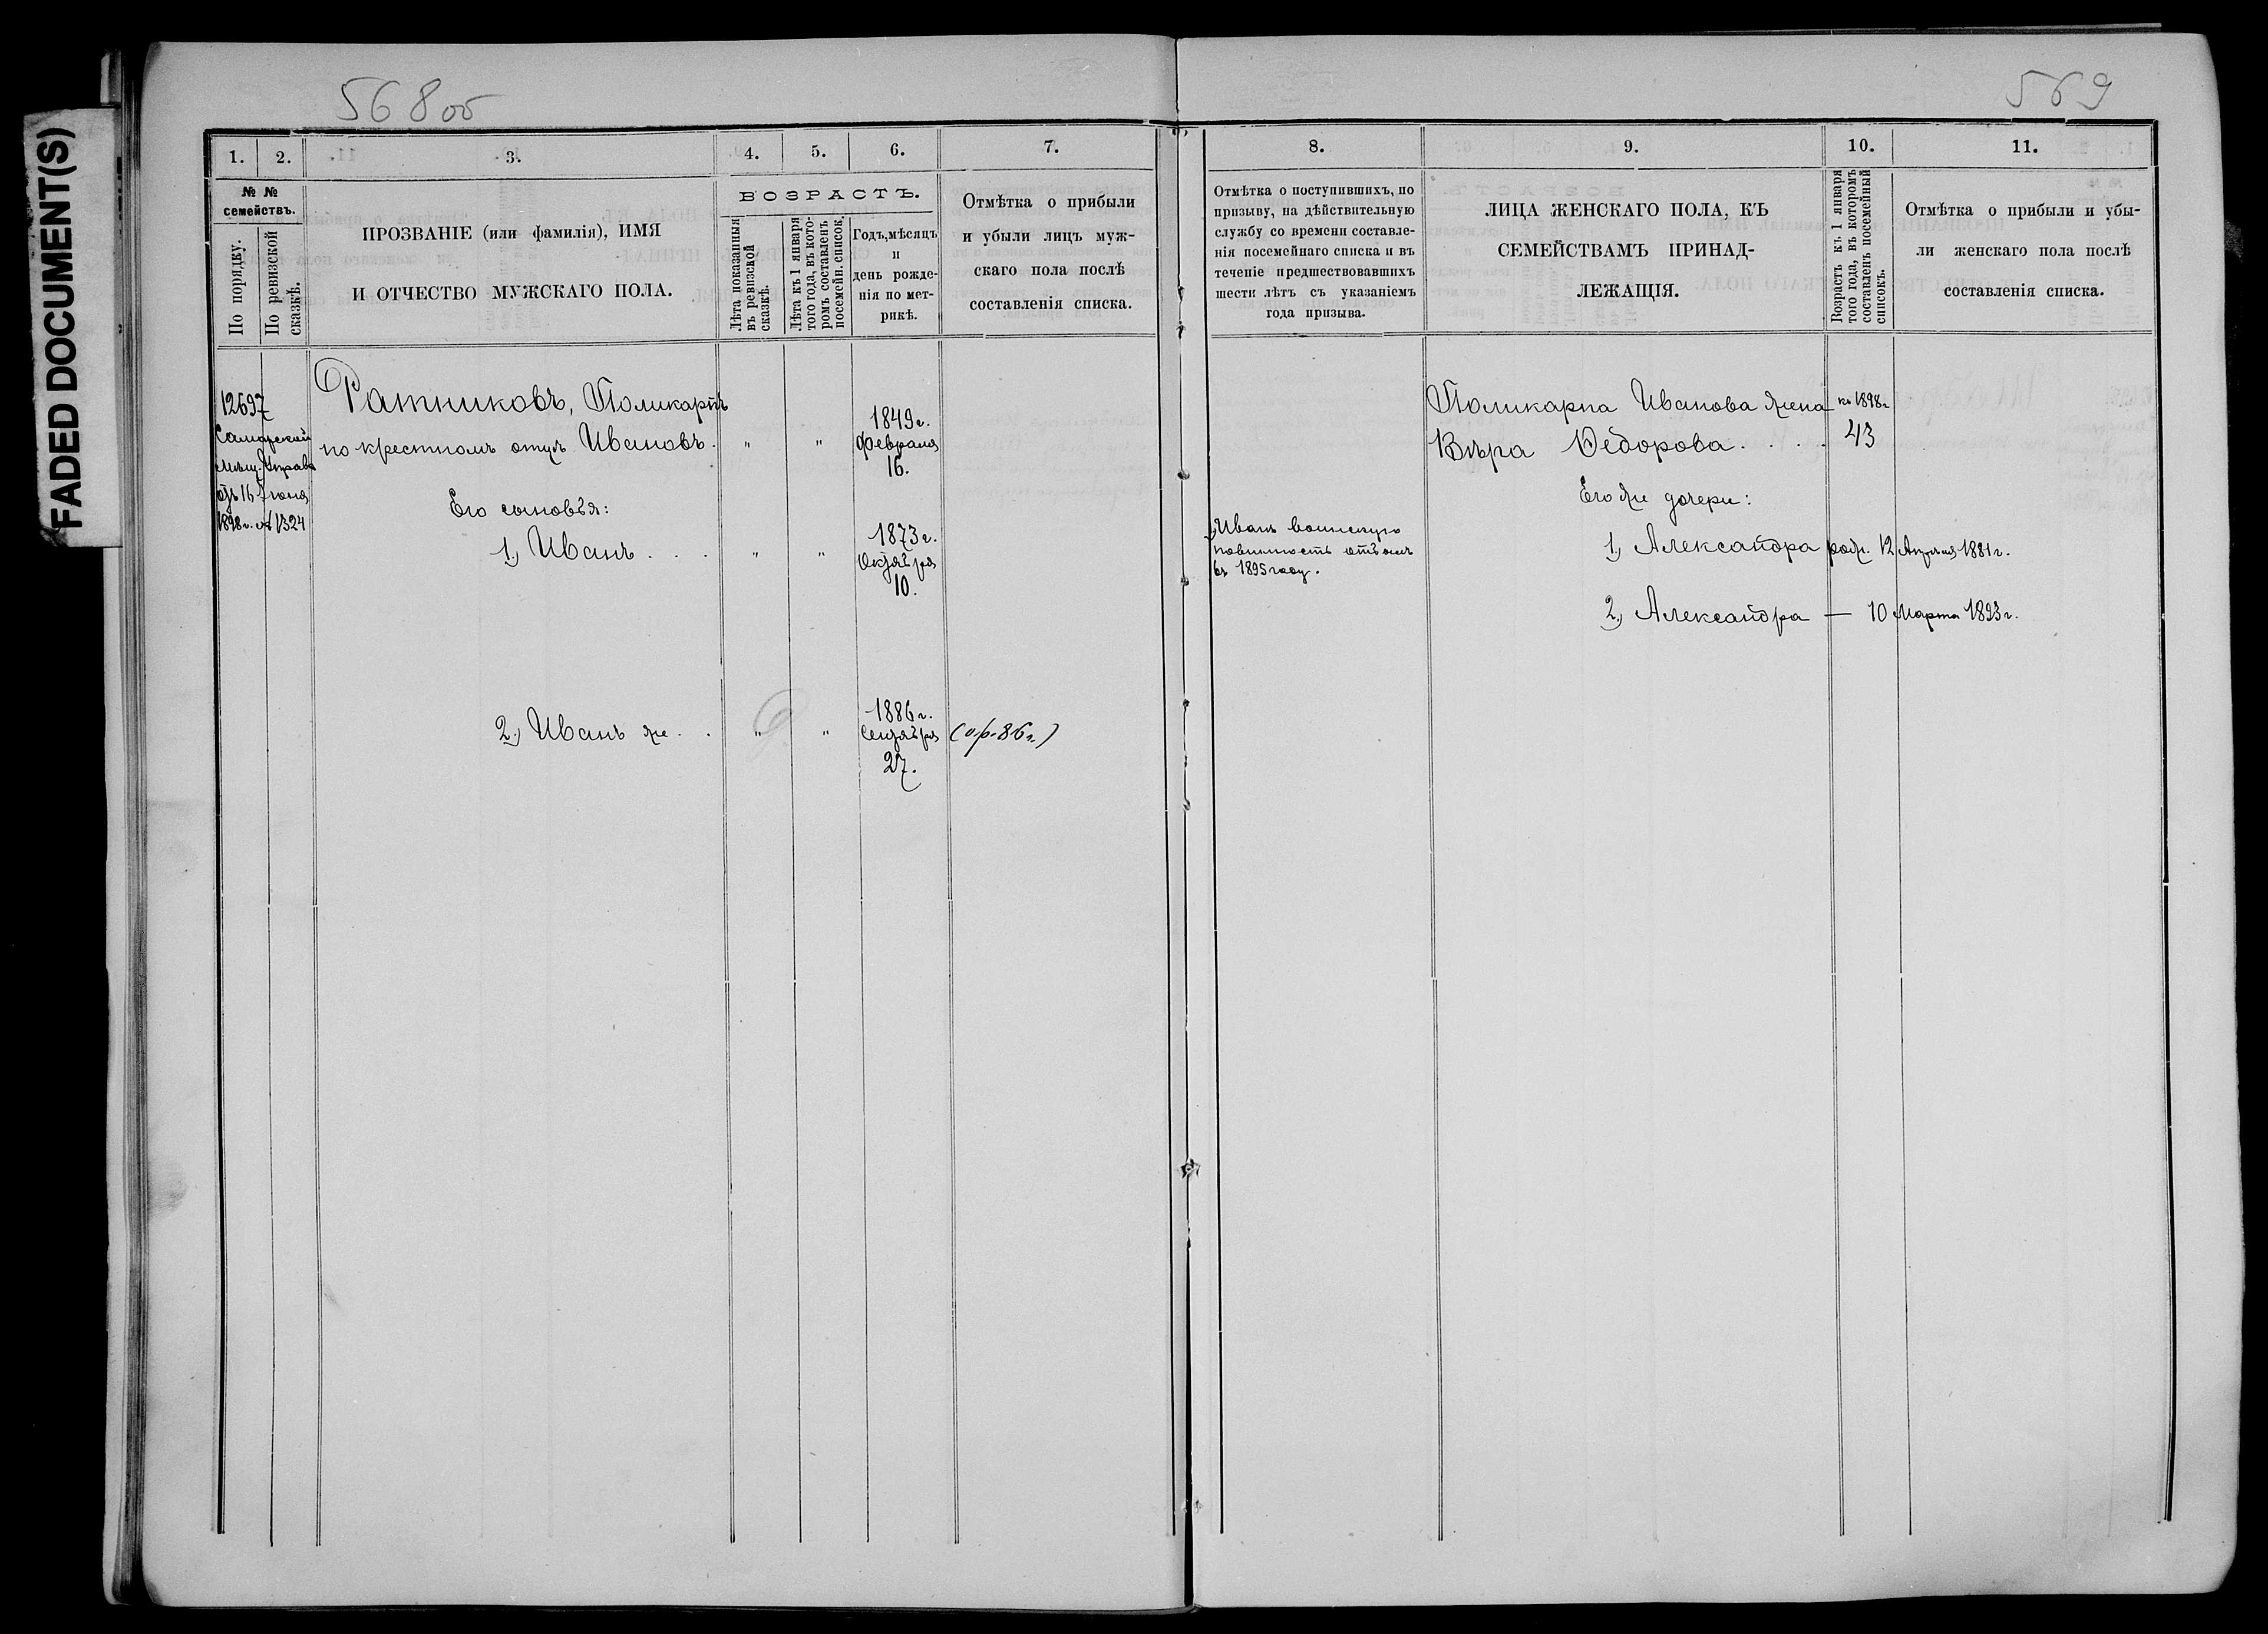 FADED DOCUMENT(S)
568об
569
1.
2.
3.
4.
5.
6.
7.
№ №
семействъ.
По порядку.
По ревизской
сказкѣ.
ПРОЗВАНІЕ (или фамилія), ИМЯ
И ОТЧЕСТВО МУЖСКАГО ПОЛА.
ВОЗРАСТЪ.
Лѣта показанныя
въ ревизской
сказкѣ.
Лѣта къ 1 января
того года, въ кото-
ромъ составленъ
посемейн. список.
Годъ, мѣсяцъ
и
день рожде-
нія по мет-
рикѣ.
Отмѣтка о прибыли
и убыли лицъ муж-
скаго пола послѣ
составленія списка.
12697
Самарской
Мѣщ. Управы
отъ 16 Іюня
1898 г. № 1324
Ратниковъ, Поликарпъ
по крестномъ отцѣ Ивановъ.
" "
1849 г.
Февраля
16.
Его сыновья:
1) Иванъ . . .
" "
1873 г.
Октября
10.
2.) Иванъ же . .
" "
1886 г.
Сентября
27.
(о.р. 86 г.)
8.
9.
10.
11.
Отмѣтка о поступившихъ, по
призыву, на дѣйствительную
службу со времени составле-
нія посемейнаго списка и въ
теченіе предшествовавшихъ
шести лѣтъ съ указаніемъ
года призыва.
ЛИЦА ЖЕНСКАГО ПОЛА, КЪ
СЕМЕЙСТВАМЪ ПРИНАД-
ЛЕЖАЩІЯ.
Возрастъ къ 1 января
того года, въ которомъ
составленъ посемейный
списокъ.
Отмѣтка о прибыли и убы-
ли женскаго пола послѣ
составленія списка.
Поликарпа Иванова жена
Вѣра Ѳедорова . . . .
къ 1898 г.
43
Его же дочери:
1) Иванъ воинскую
повинность отбылъ
въ 1895 году.
1) Александра род. 12 Апрѣля 1881 г.
2) Александра — 10 Марта 1893 г.